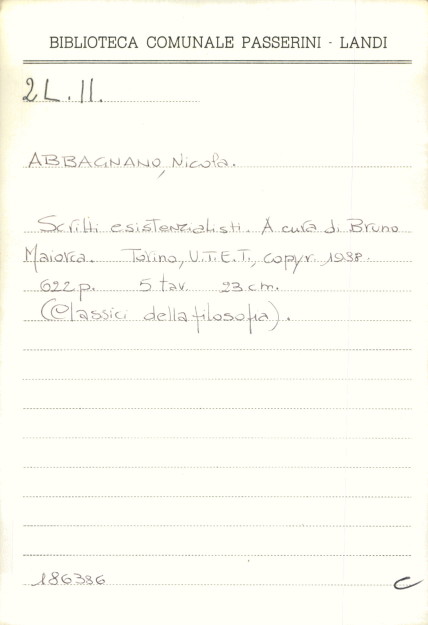 BIBLIOTECA COMUNALE PASSERINI - LANDI
2L.II.
ABBAGNANO, Nicola.
Scritti esistenzialisti. A cura di Bruno
Maiorca. Torino, U.T.E.T., copyr. 1988.
622 p. 5 tav. 23 cm.
(Classici della filosofia).
186386 C